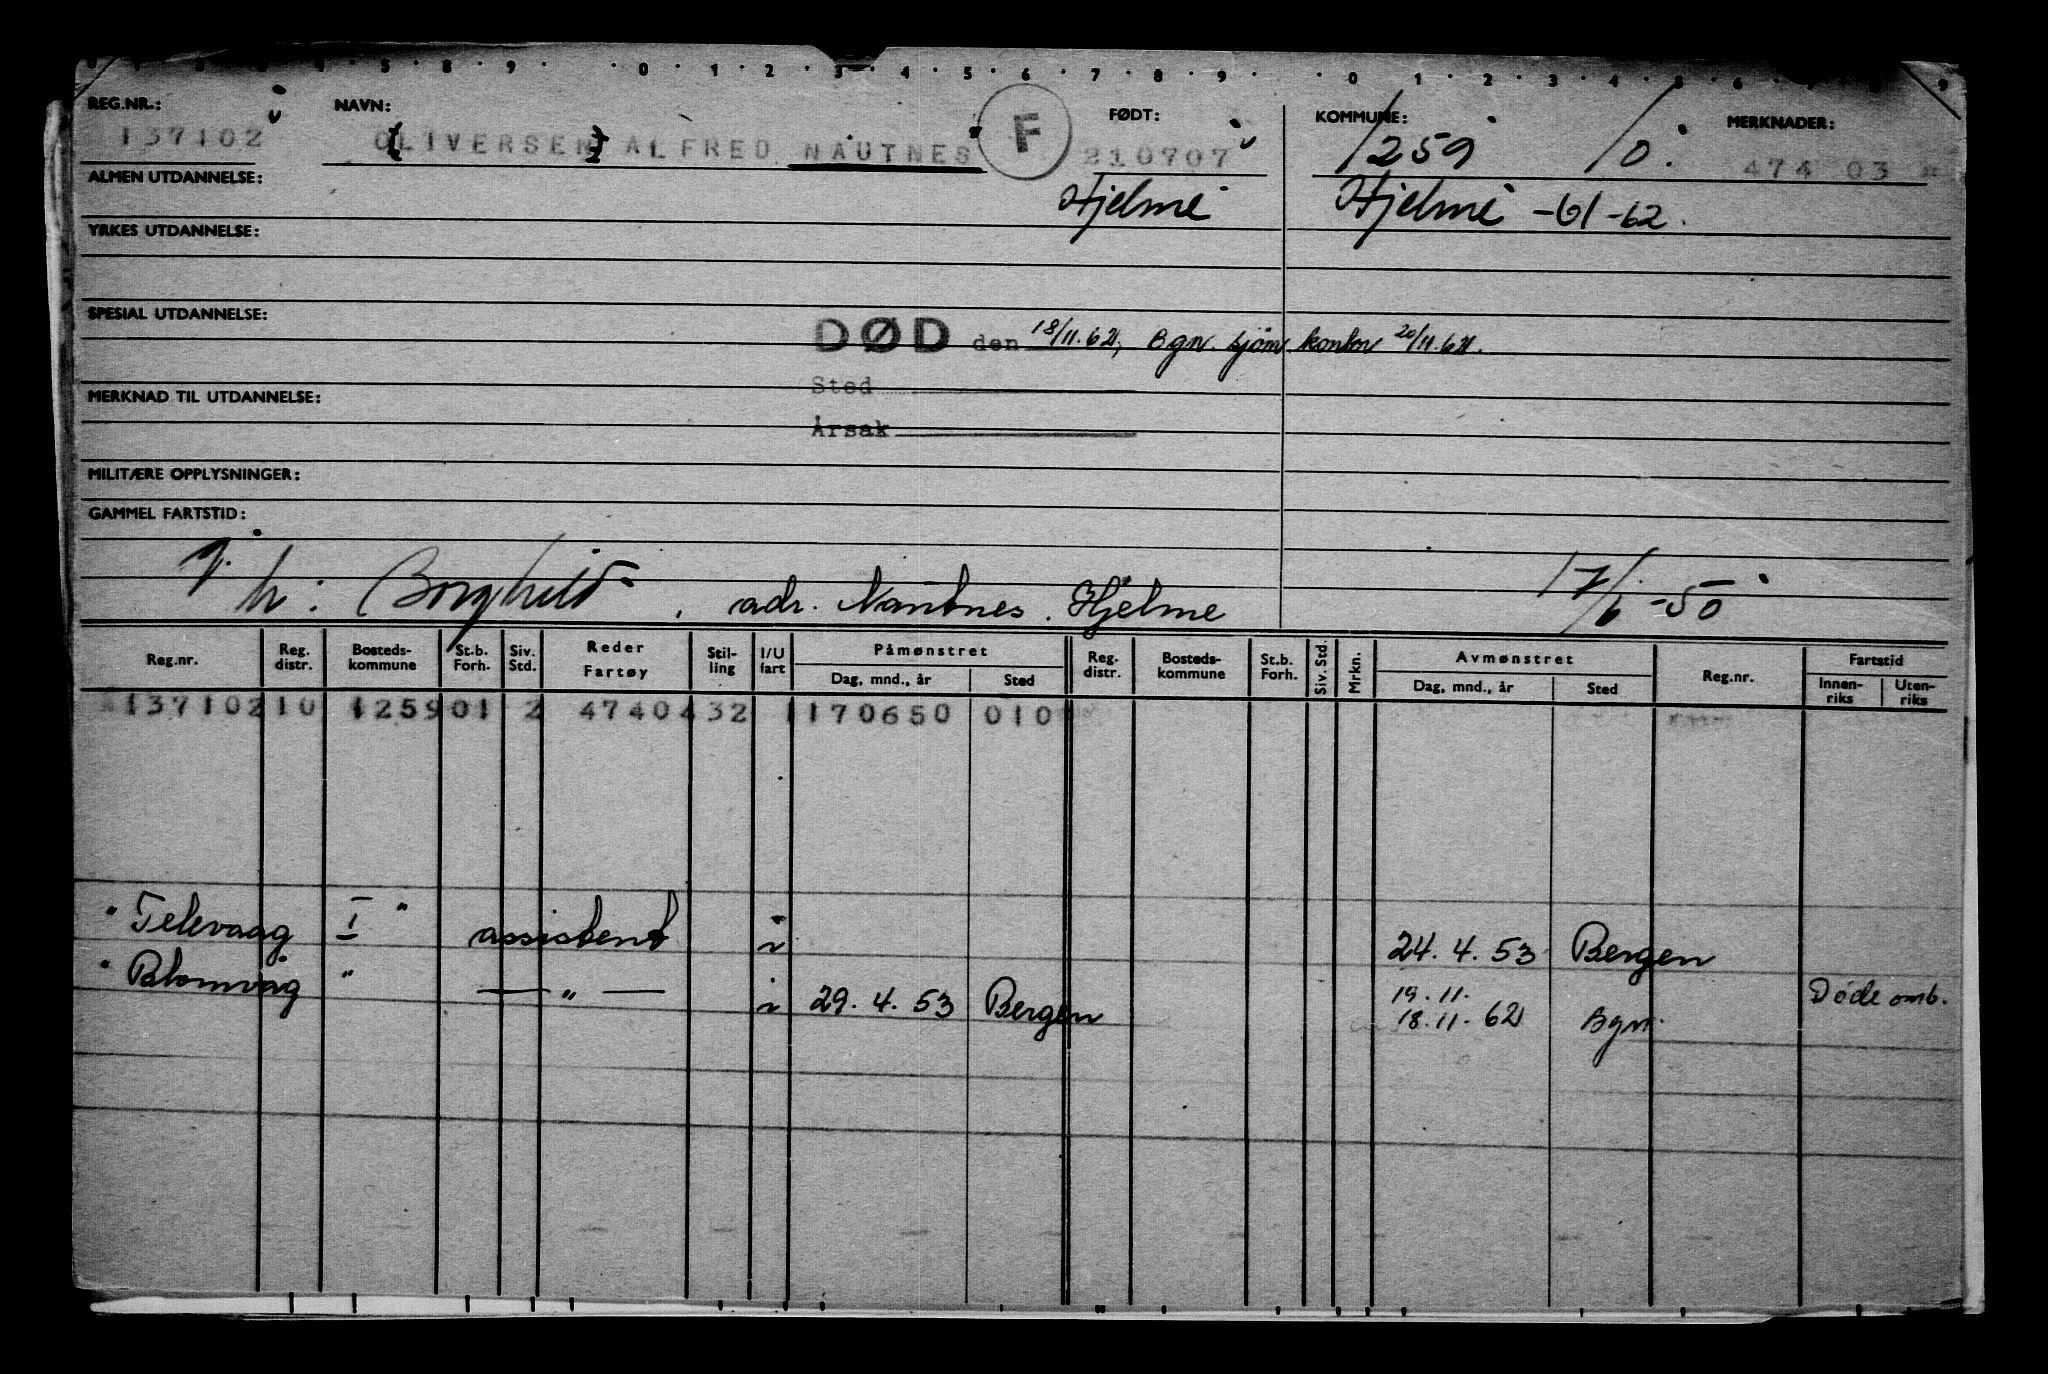 REG.NR.: NAVN: FØDT: KOMMUNE: MERKNADER:
137102 {OLIVERSEN} ALFRED NAUTNES F 210707 1259 10. 474 03
ALMEN UTDANNELSE: Hjelme Hjelme -61-62.
YRKES UTDANNELSE:
SPESIAL UTDANNELSE:
DØD den 18/11.62, Bgn. sjøm. kontor 20/11.62.
Sted
MERKNAD TIL UTDANNELSE:
Årsak
MILITÆRE OPPLYSNINGER:
GAMMEL FARTSTID:
g. h: Borghild, adr. Nautnes. Hjelme 17/6-50
Reg.nr. Reg. distr. Bosteds- kommune St.b. Forh. Siv. Std. Reder Fartøy Stil- ling I/U fart Påmønstret Dag, mnd., år Sted Reg. distr. Bosteds- kommune St.b. Forh. Siv. Std. Mrkn. Avmønstret Dag, mnd., år Sted Reg.nr. Fartstid Innen- riks Uten- riks
137102 10 1259 01 2 4740 4 32 1 170650 010
" Televaag I " assistent i 24.4.53 Bergen
" Blomvåg " — " — i 29.4.53 Bergen 19.11. 18.11.62 Bgn. Døde omb.